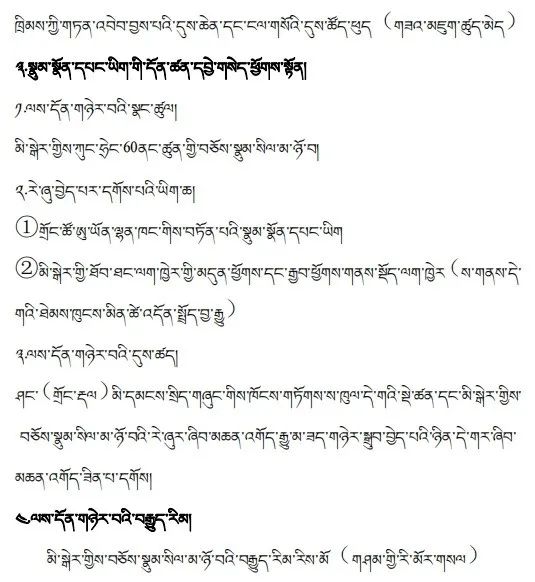 ཁྲིམས་ཀྱི་གཏན་འབེབ་བྱས་པའི་དུས་ཆེན་དང་ངལ་གསོའི་དུས་ཚོད་ཕུད (གཟའ་མཇུག་ཚུད་མེད)
༣.སྣུམ་སྣོན་དཔང་ཡིག་གི་དོན་ཚན་དབྱེ་གསེད་ཕྱོགས་སྟོན།
༡.ལས་དོན་གཉེར་བའི་སྣང་ཚུལ།
མི་སྒེར་གྱིས་ཀུང་ཧྲེང་60ནང་ཚུན་གྱི་བཅོས་སྣུམ་སིལ་མ་ཉོ་བ།
༢.རེ་ཞུ་བྱེད་པར་དགོས་པའི་ཡིག་ཆ།
①གྲོང་ཚོ་ཨུ་ཡོན་ལྷན་ཁང་གིས་བཏོན་པའི་སྣུམ་སྣོན་དཔང་ཡིག
②མི་སྒེར་གྱི་ཐོབ་ཐང་ལག་ཁྱེར་གྱི་མདུན་ཕྱོགས་དང་རྒྱབ་ཕྱོགས་གནས་སྡོད་ལག་ཁྱེར (ས་གནས་དེ་
གའི་ཐེམས་ཁུངས་མིན་ཚེ་འདོན་སྤྲོད་བྱ་རྒྱུ)
༣.ལས་དོན་གཉེར་བའི་དུས་ཚད།
ཤང་(གྲོང་རྡལ)མི་དམངས་སྲིད་གཞུང་གིས་ཁོངས་གཏོགས་ས་ཁུལ་དེ་གའི་སྡེ་ཚན་དང་མི་སྒེར་གྱིས་
བཅོས་སྣུམ་སིལ་མ་ཉོ་བའི་རེ་ཞུར་ཞིབ་མཆན་འགོད་རྒྱུ་མ་ཟད་གཉེར་སྒྲུབ་བྱེད་པའི་ཉིན་དེ་གར་ཞིབ་
མཆན་འགོད་ཟིན་པ་དགོས།
༤.ལས་དོན་གཉེར་བའི་བརྒྱུད་རིམ།
མི་སྒེར་གྱིས་བཅོས་སྣུམ་སིལ་མ་ཉོ་བའི་བརྒྱུད་རིམ་རིས་མོ (གཤམ་གྱི་རི་མོར་གསལ)